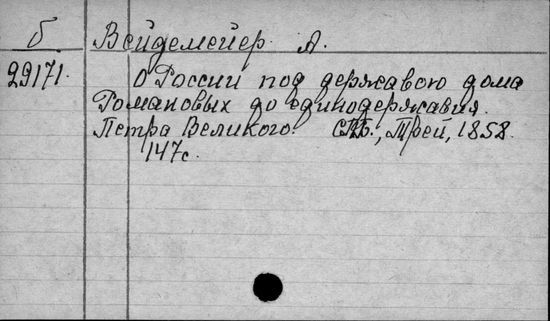 б Вейдемейер А.
29171. О России под державою дома
Романовых до единодержавия
Петра Великого. СПБ., Трей, 1858.
147с.